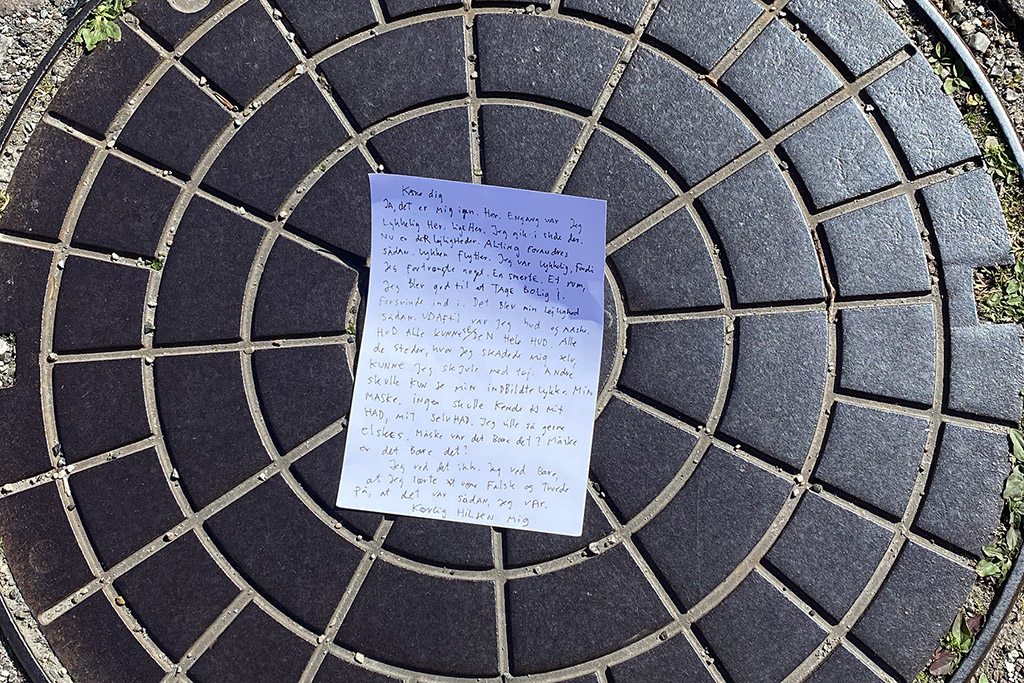 Kære dig
JA, det er mig igen. Her. Engang var jeg
Lykkelig Her. Lige Her. Jeg gik i skole her.
Nu er deR lejligheder. Alting Forandres
sådan. Lykken Flytter. Jeg var lykkelig, Fordi
jeg Fortrængte noget. En smerte. Et rum,
jeg Blev god til at TAGE BOLIG I.
Forsvinde ind i. Det Blev min lejlighed
sådan. UDAFtil var jeg hud og maske.
HUD Alle KUNNE SE. EN Hel HUD. Alle
de steder, hvor jeg skadede mig selv
KUNNE jeg skjule med tøj. Andre
skulle KUN se min indBildte lykke. Min
MASKE. ingen skulle Kende til Mit
HAD, MIT SelvHAD. Jeg ville så gerne
elskes. Måske var det Bare det? Måske
er det bare det?
Jeg ved det ikke. Jeg ved Bare,
at jeg lærte at være Falsk og troede
på, at det var sådan, jeg VAR.
Kærlig HilSEN Mig